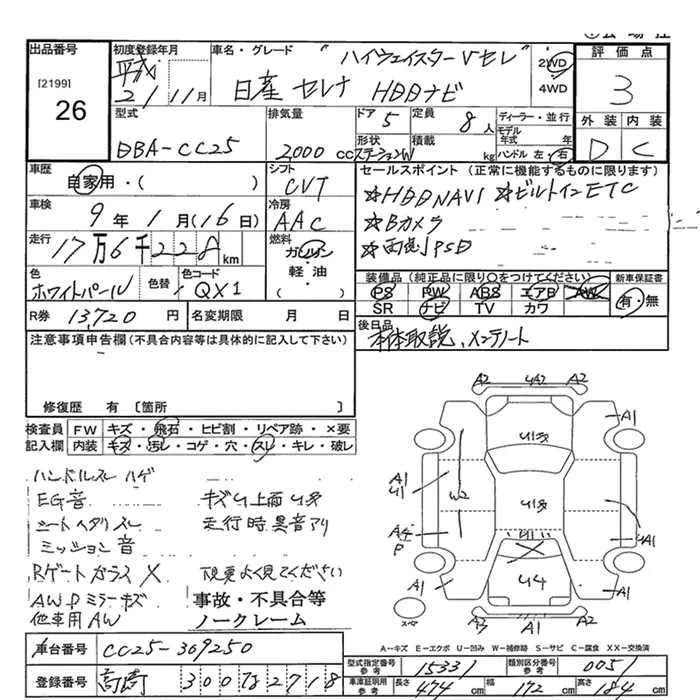 出品番号 初度登録年月 車名・グレード "ハイウェイスターVセレ" 2WD 評価点
[2199] 平成 4WD 3
26 21 11月 日産 セレナ HDDナビ
型式 排気量 ドア 5 定員 8人 ディーラー・並行 外装 内装
DBA-CC25 2,000cc 形状 ステーションW 積載 kg モデル年式 年 D C
ハンドル 左・右
車歴 シフト セールスポイント(正常に機能するものに限ります)
自家用・( ) CVT ☆HDDNAVI ☆ビルトインETC
車検 冷房 ☆Bカメラ
9年1月(16日) AAC ☆両側PSD
走行 燃料
17万6千228km ガソリン
軽油
色 色替 色コード ・( ) 装備品(純正品に限り○をつけてください) 新車保証書
ホワイトパール QX1 PS PW ABS エアB AW 有・無
SR ナビ TV カワ
R券 13,720円 名変期限 月 日 後日品
本体取説、メンテノート
注意事項申告欄(不具合内容等は具体的に記入して下さい)
修復歴 有〔箇所 〕
検査員 FW キズ・飛石・ヒビ割・リペア跡・×要
記入欄 内装 キズ・汚レ・コゲ・穴・スレ・キレ・破レ
ハンドルスレ ハゲ
EG音 キズU上面U多
シートヘタリスレ 走行時異音アリ
ミッション音
Rゲートガラス X 現車よく見てください
AW Pミラーキズ 事故・不具合等
他車用AW ノークレーム
A2 UA2 A2
A1 A1
U多
A1
U1 W2 U多
A4
P U1
A1 U4 A1
A2
スペア
A--キズ E--エクボ U--凹み W--補修跡 S--サビ C--腐食 XX--交換済
車台番号 CC25-369250
登録番号 高崎 300 2718
型式指定番号 参考 15331 類別区分番号 参考 0051
車庫証明用 参考 長さ 474cm 幅 172cm 高さ 184cm